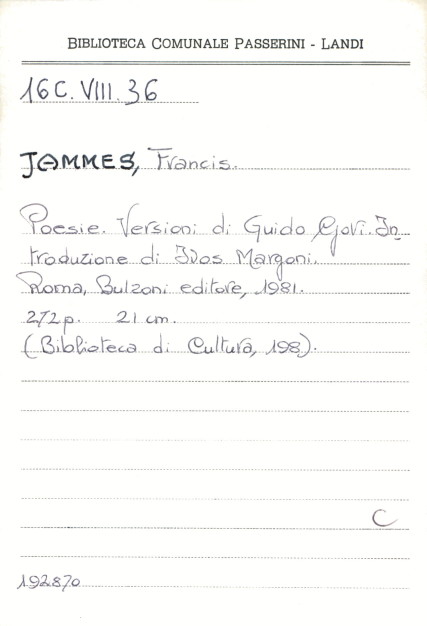 BIBLIOTECA COMUNALE PASSERINI - LANDI
16C.VIII.36
JAMMES, Francis.
Poesie. Versioni di Guido Govi. In
troduzione di Ivos Margoni.
Roma, Bulzoni editore, 1981.
272 p. 21 cm.
(Biblioteca di Cultura, 198).
C
192870